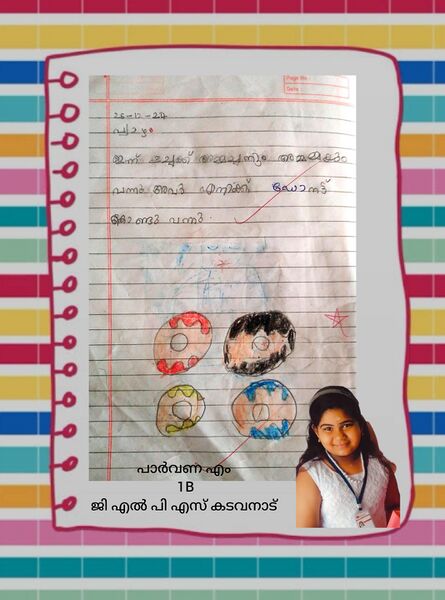 Page No
Date
26-12-24
വ്യാഴം
ഇന്ന് ഉച്ചക്ക് അമ്മച്ചനും അമ്മമ്മയും
വന്നു അവർ എനിക്ക് ഡോനട്ട്
കൊണ്ടു വന്നു.
പാർവണ എം
1B
ജി എൽ പി എസ് കടവനാട്